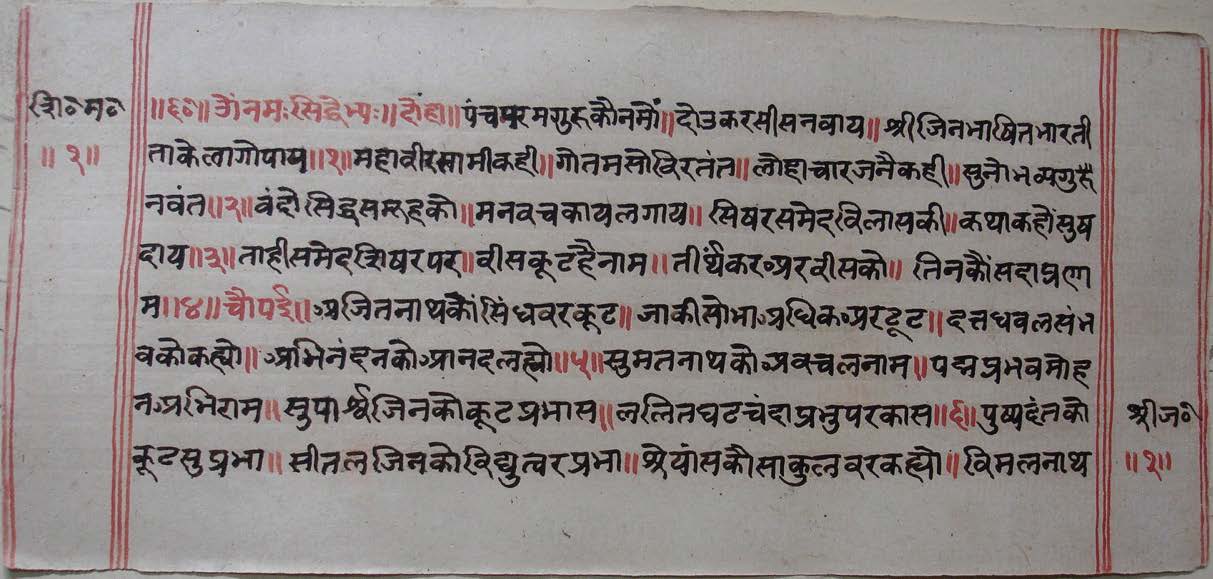 शि०म०
॥१॥
॥६०॥ उोंनमःसिद्धेभ्यः॥दोहा॥पंचपरमगुरूकौनमों॥दोउकरसीसनवाय॥श्रीजिनभाषितभारती
ताकेलागोपाय॥१॥महावीरसामीकही॥गोतमसोविरतंत॥लोहाचारजनैकही॥सुनोभव्यगुरू
नवंत॥२॥वंदोसिद्धसमूहको॥मनवचकायलगाय॥सिषरसमेदविलासकी॥कथाकहोंसुष
दाय॥३॥ताहीसमेदशिषरपर॥वीसकूटहैनाम॥तीर्थंकरअरवीसको॥तिनकौंसदाप्रणा
म॥४॥चौपई॥अजितनाथकौंसिंधवरकूट॥जाकीसोभाअधिकअटूट॥दत्तधवलसंभ
वकोकह्यो॥अभिनंदनकोआनदलह्यो॥५॥सुमतनाथकोअवचलनाम॥पद्मप्रभवमोह
नअभिराम॥सुपार्श्वजिनकौकूटप्रभास॥ललितघटचंदाप्रभुपरकास॥६॥पुष्पदंतको
कूटसुप्रभा॥सीतलजिनकोविद्युत्वरप्रभा॥श्रेयांसकौसाकुलवरकह्यो॥विमलनाथ
श्रीज०
॥१॥